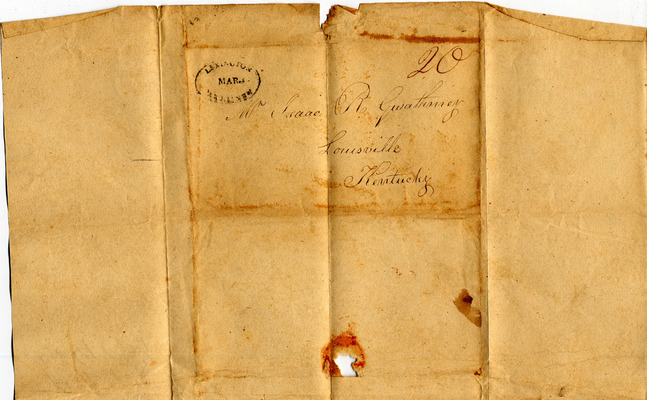 20
LEXINGTON
MAR.
KENTUCKY
Mr Isaac R Gwathmey
Louisville
Kentucky